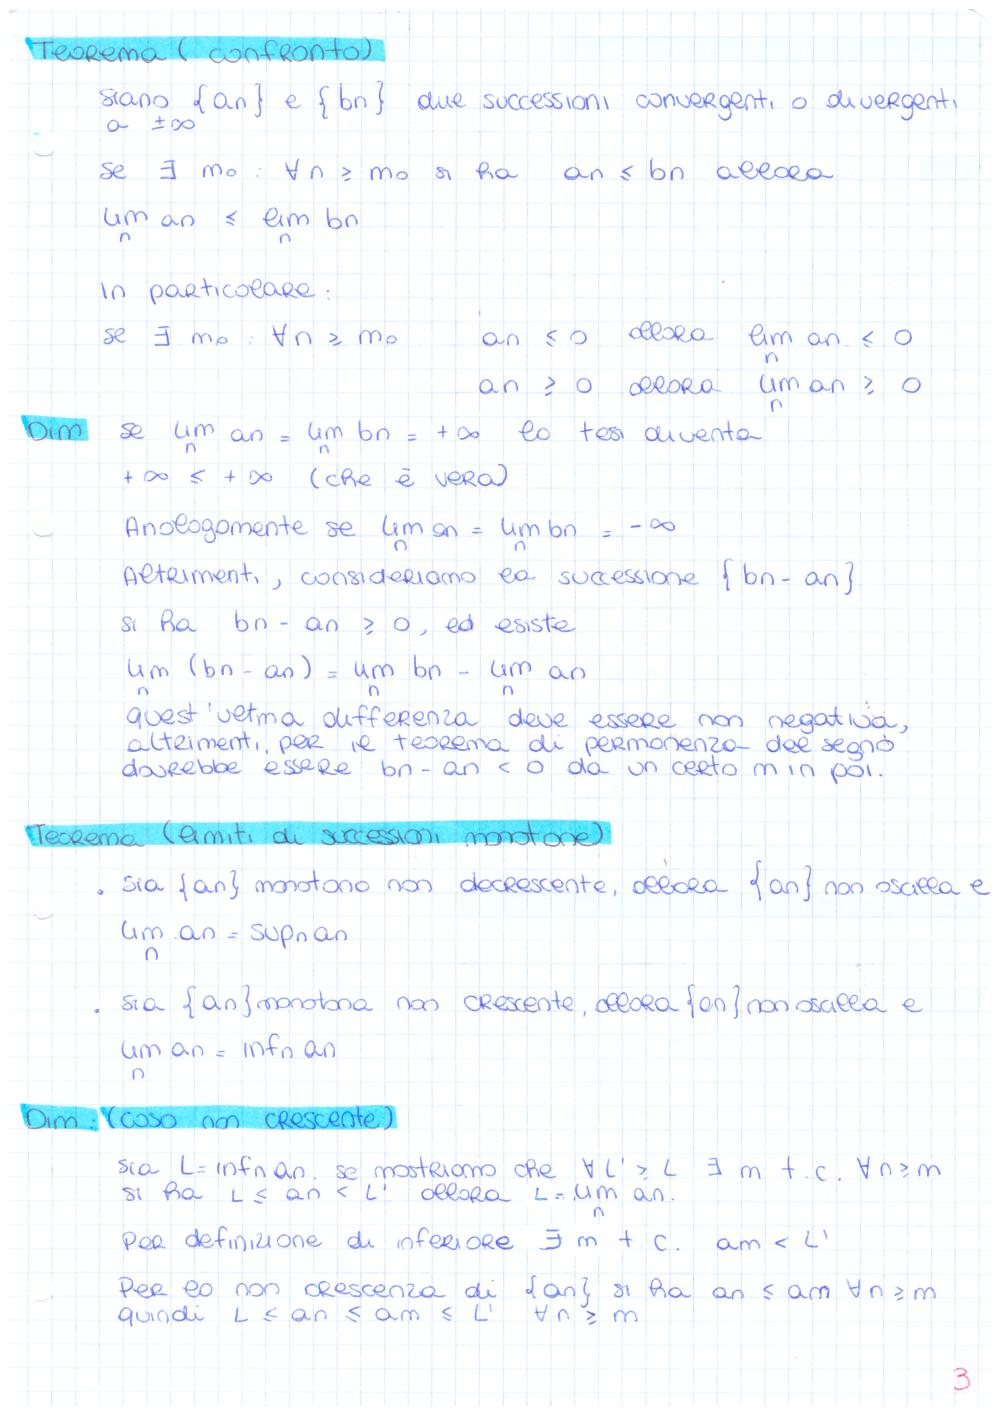 Teorema (confronto)
siano {an} e {bn} due successioni convergenti o divergenti
a ±∞
se ∃ m₀ : ∀n ≥ m₀ si ha an ≤ bn allora
lim an ≤ lim bn
n n
In particolare:
se ∃ m₀ : ∀n ≥ m₀ an ≤ 0 allora lim an ≤ 0
n
an ≥ 0 allora lim an ≥ 0
n
Dim se lim an = lim bn = +∞ la tesi diventa
n n
+∞ ≤ +∞ (che è vera)
Analogamente se lim an = lim bn = -∞
n n
Altrimenti, consideriamo la successione {bn - an}
si ha bn - an ≥ 0, ed esiste
lim (bn - an) = lim bn - lim an
n n n
quest'ultima differenza deve essere non negativa,
altrimenti, per il teorema di permanenza del segno
dovrebbe essere bn - an < 0 da un certo m in poi.
Teorema (limiti di successioni monotone)
. Sia {an} monotona non decrescente, allora {an} non oscilla e
lim an = supn an
n
. sia {an} monotona non crescente, allora {an} non oscilla e
lim an = infn an
n
Dim: (caso non crescente)
sia L = infn an. se mostriamo che ∀L' ≥ L ∃ m t.c. ∀n ≥ m
si ha L ≤ an < L' allora L = lim an.
n
Per definizione di inferiore ∃ m t.c. am < L'
Per la non crescenza di {an} si ha an ≤ am ∀n ≥ m
quindi L ≤ an ≤ am ≤ L' ∀n ≥ m
3